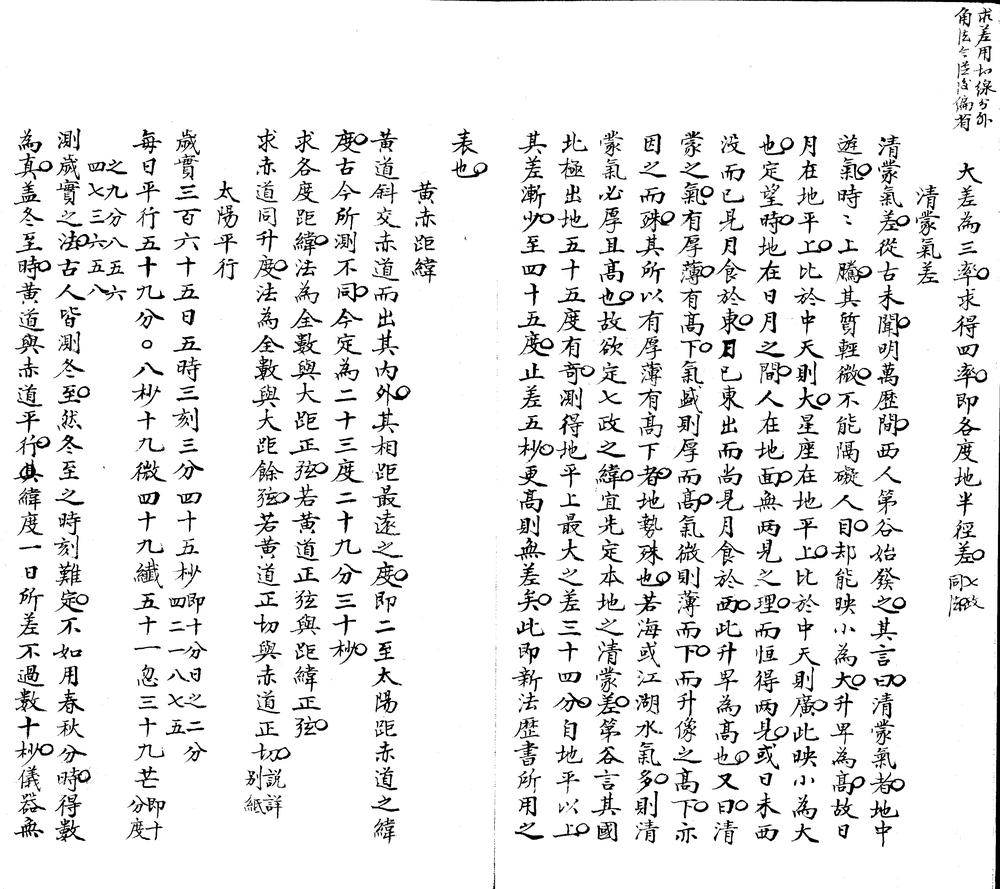 求差用切線分外
角法今
偏有
大差為三率求得四率即各度地半徑差七政
同法
清蒙氣差
清蒙氣差從古未聞明萬歷間西人第谷始發之其言曰清蒙氣者地中
遊氣時〻上騰其質輕微不能隔礙人目却能映小為大升卑為高故日
月在地平上比於中天則大星座在地平上比於中天則廣此映小為大
也定望時地在日月之間人在地面無兩見之理而恒得兩見或日未西
没而已見月食於東日已東出而尚見月食於西此升卑為高也又曰清
蒙之氣有厚薄有高下氣盛則厚而高氣微則薄而下而升像之高下亦
因之而殊其所以有厚薄有高下者地勢殊也若海或江湖水氣多則清
蒙氣必厚且高也故欲定七政之緯宜先定本地之清蒙差第谷言其國
北極出地五十五度有奇測得地平上最大之差三十四分自地平以上
其差漸少至四十五度止差五秒更高則無差矣此即新法歷書所用之
表也
黃赤距緯
黃道斜交赤道而出其內外其相距最遠之度即二至太陽距赤道之緯
度古今所測不同今定為二十三度二十九分三十秒
求各度距緯法為全數與大距正弦若黃道正弦與距緯正弦
求赤道同升度法為全數與大距餘弦若黃道正切與赤道正切說詳
別紙
太陽平行
歲實三百六十五日五時三刻三分四十五秒即十分日之二分
四二一八七五
每日平行五十九分〇八秒十九微四十九纖五十一忽三十九芒即十
分度
之九分八五六
四七三六五八
測歲實之法古人皆測冬至然冬至之時刻難定不如用春秋分時得數
為真盖冬至時黃道與赤道平行其緯度一日所差不過數十秒儀器無